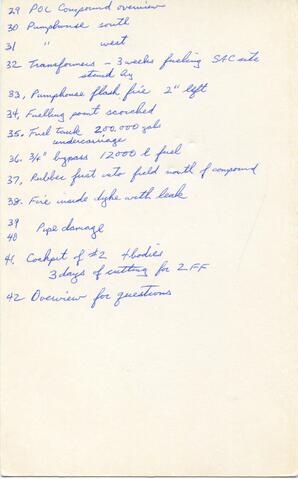 29 POL Compound overview
30 Pumphouse south
31 " west
32 Transformers - 3 weeks fueling SAC site
stand by
33. Pumphouse flash fire 2" left
34. Fuelling point scorched
35. Fuel tank 200,000 gals
undercarriage
36. 3/4" bypass 12000 l fuel
37. Rubber first into field north of compound
38. Fire inside dyke with leak
39
40 Pipe damage
41. Cockpit of #2 4 bodies
3 days of cutting for 2 FF
42 Overview for questions